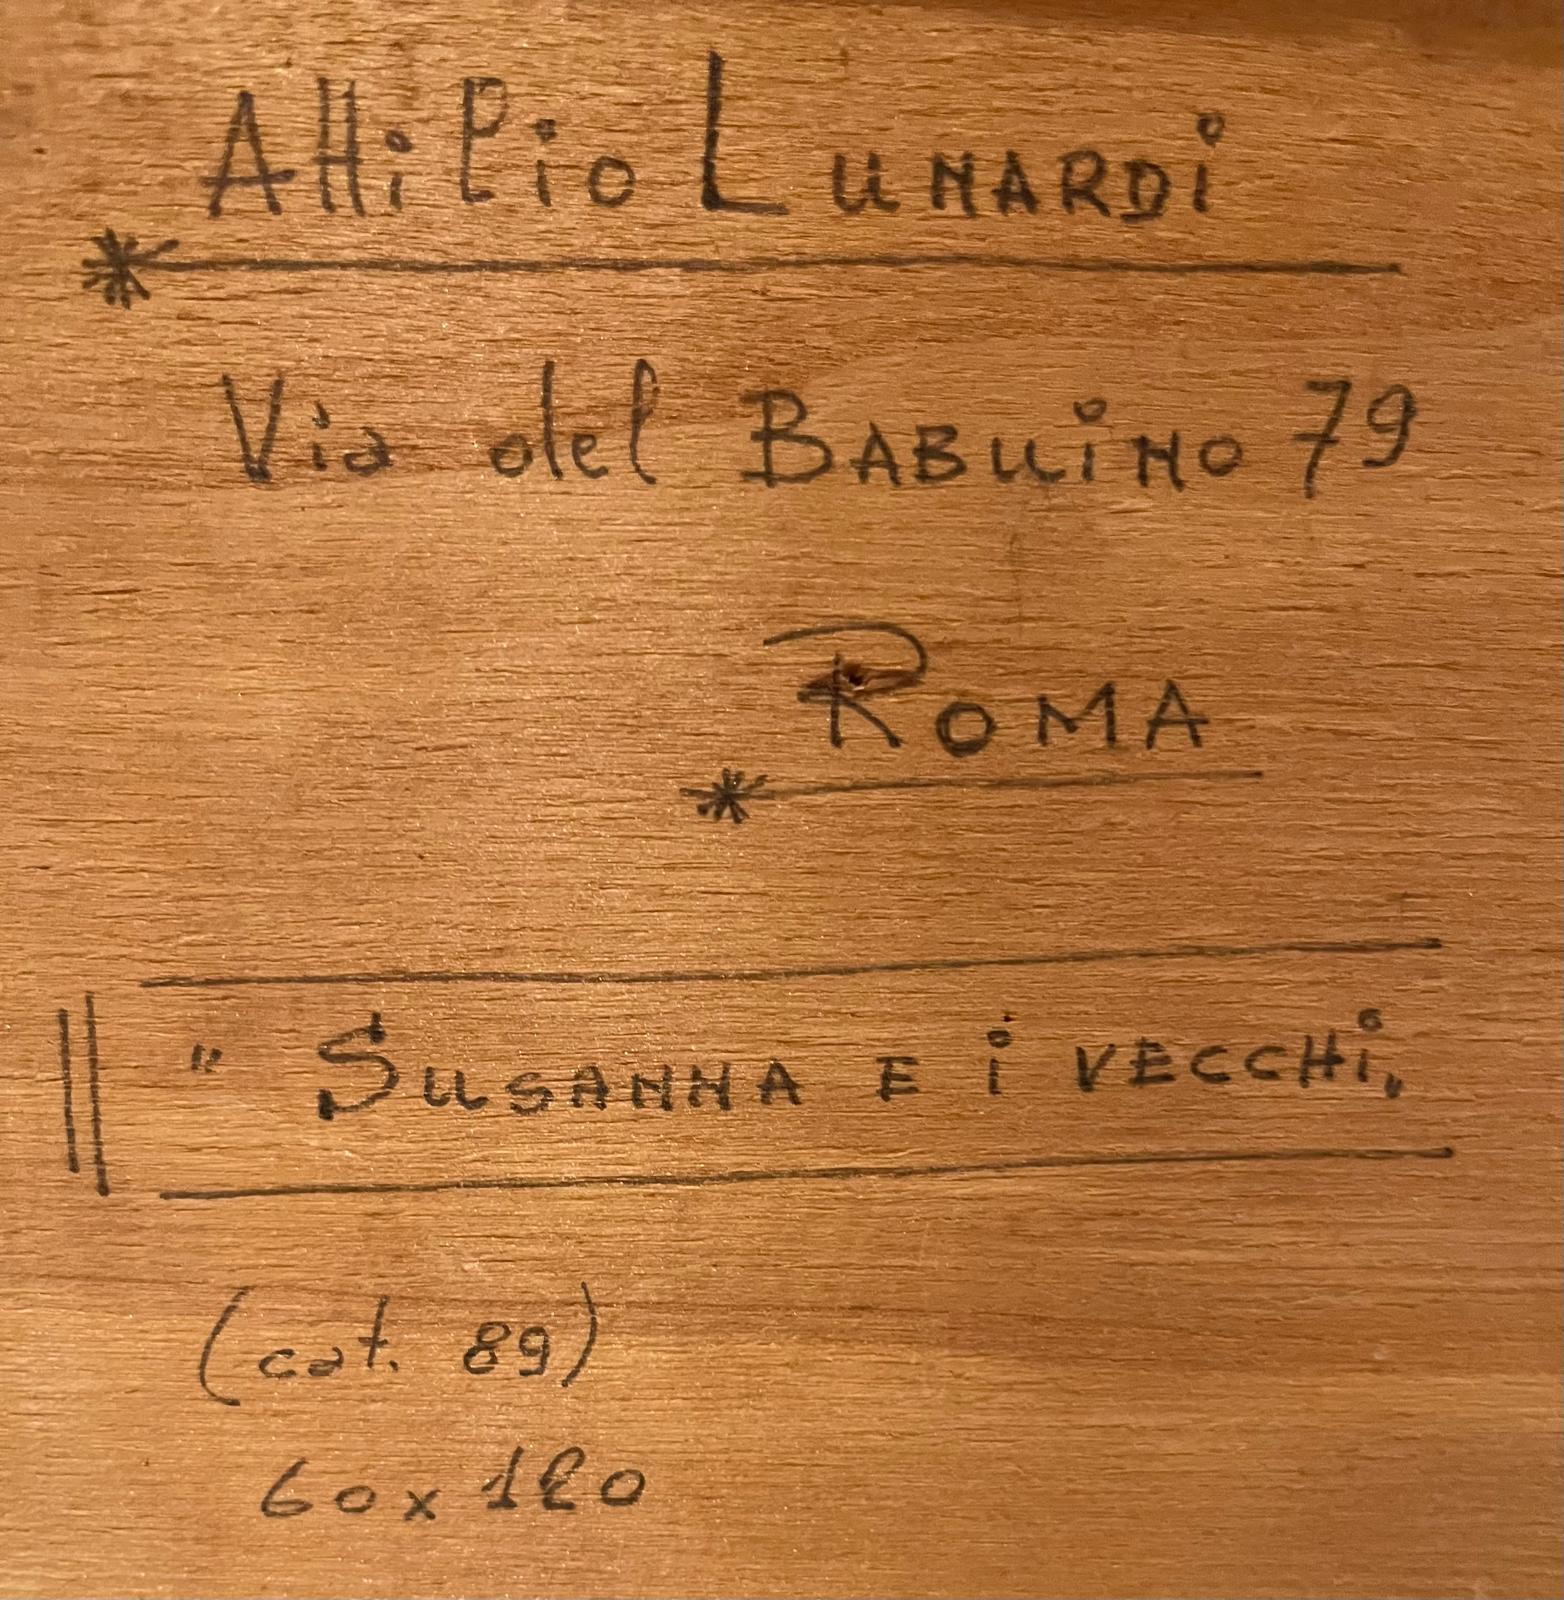 Attilio Lunardi
Via del Babuino 79
Roma
" Susanna e i vecchi "
(cat. 89)
60 x 120